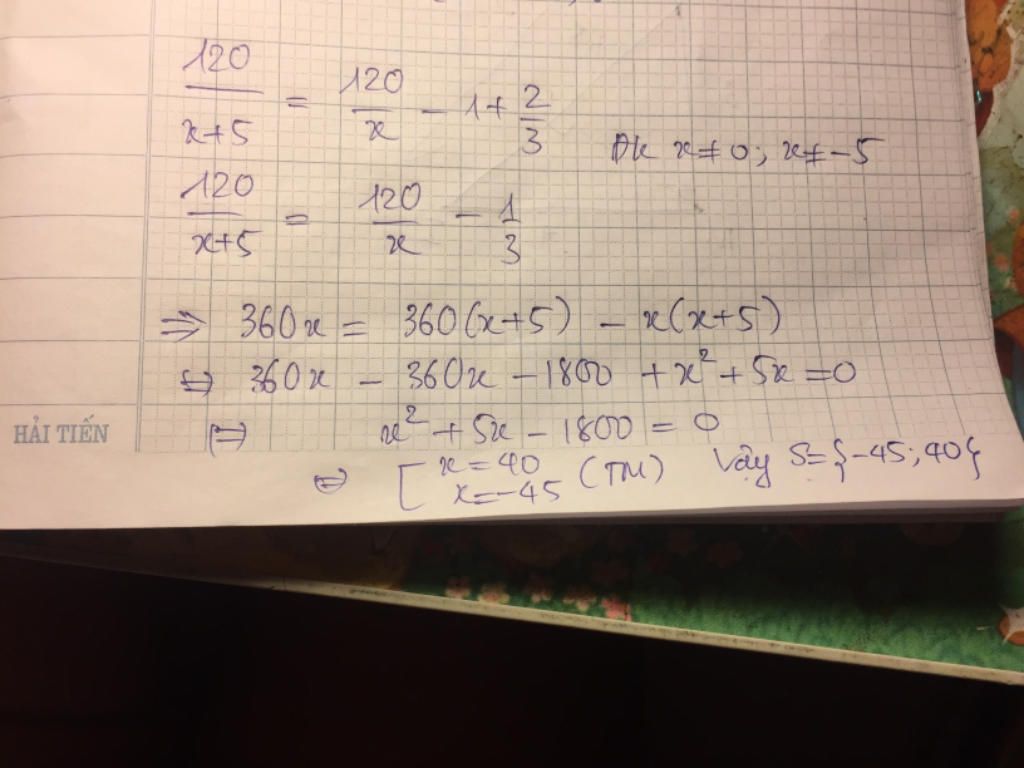 120/(x+5) = 120/x - 1 + 2/3 ĐK x ≠ 0; x ≠ -5
120/(x+5) = 120/x - 1/3
⇒ 360x = 360(x+5) - x(x+5)
⇔ 360x - 360x - 1800 + x² + 5x = 0
⇔ x² + 5x - 1800 = 0
⇔ [ x = 40
x = -45 (TM) Vậy S = {-45; 40}
HẢI TIẾN